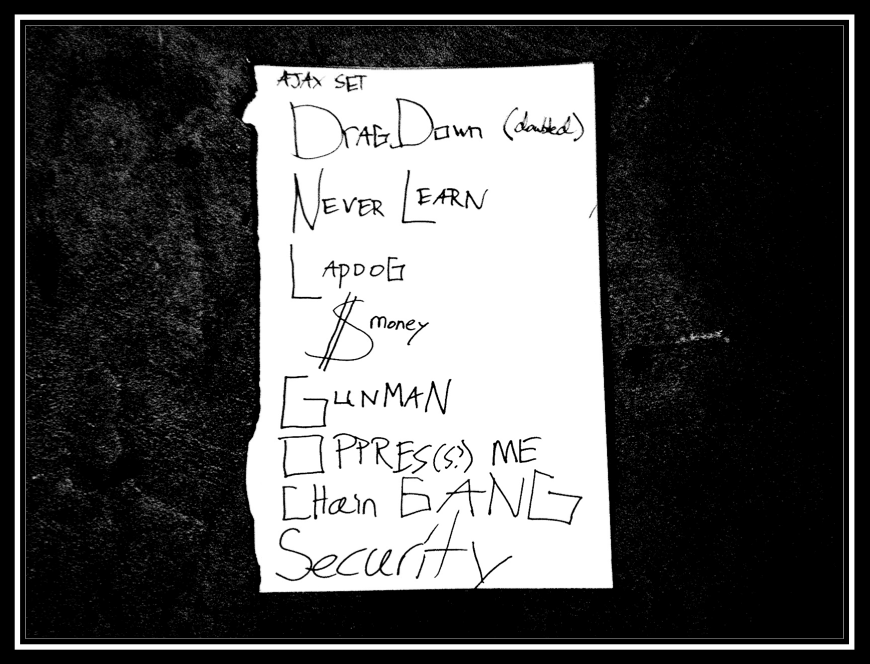 AJAX SET
DRAG DOWN (doubled)
NEVER LEARN
LAPDOG
$ money
GUNMAN
OPPRES(S?) ME
CHain GANG
Security